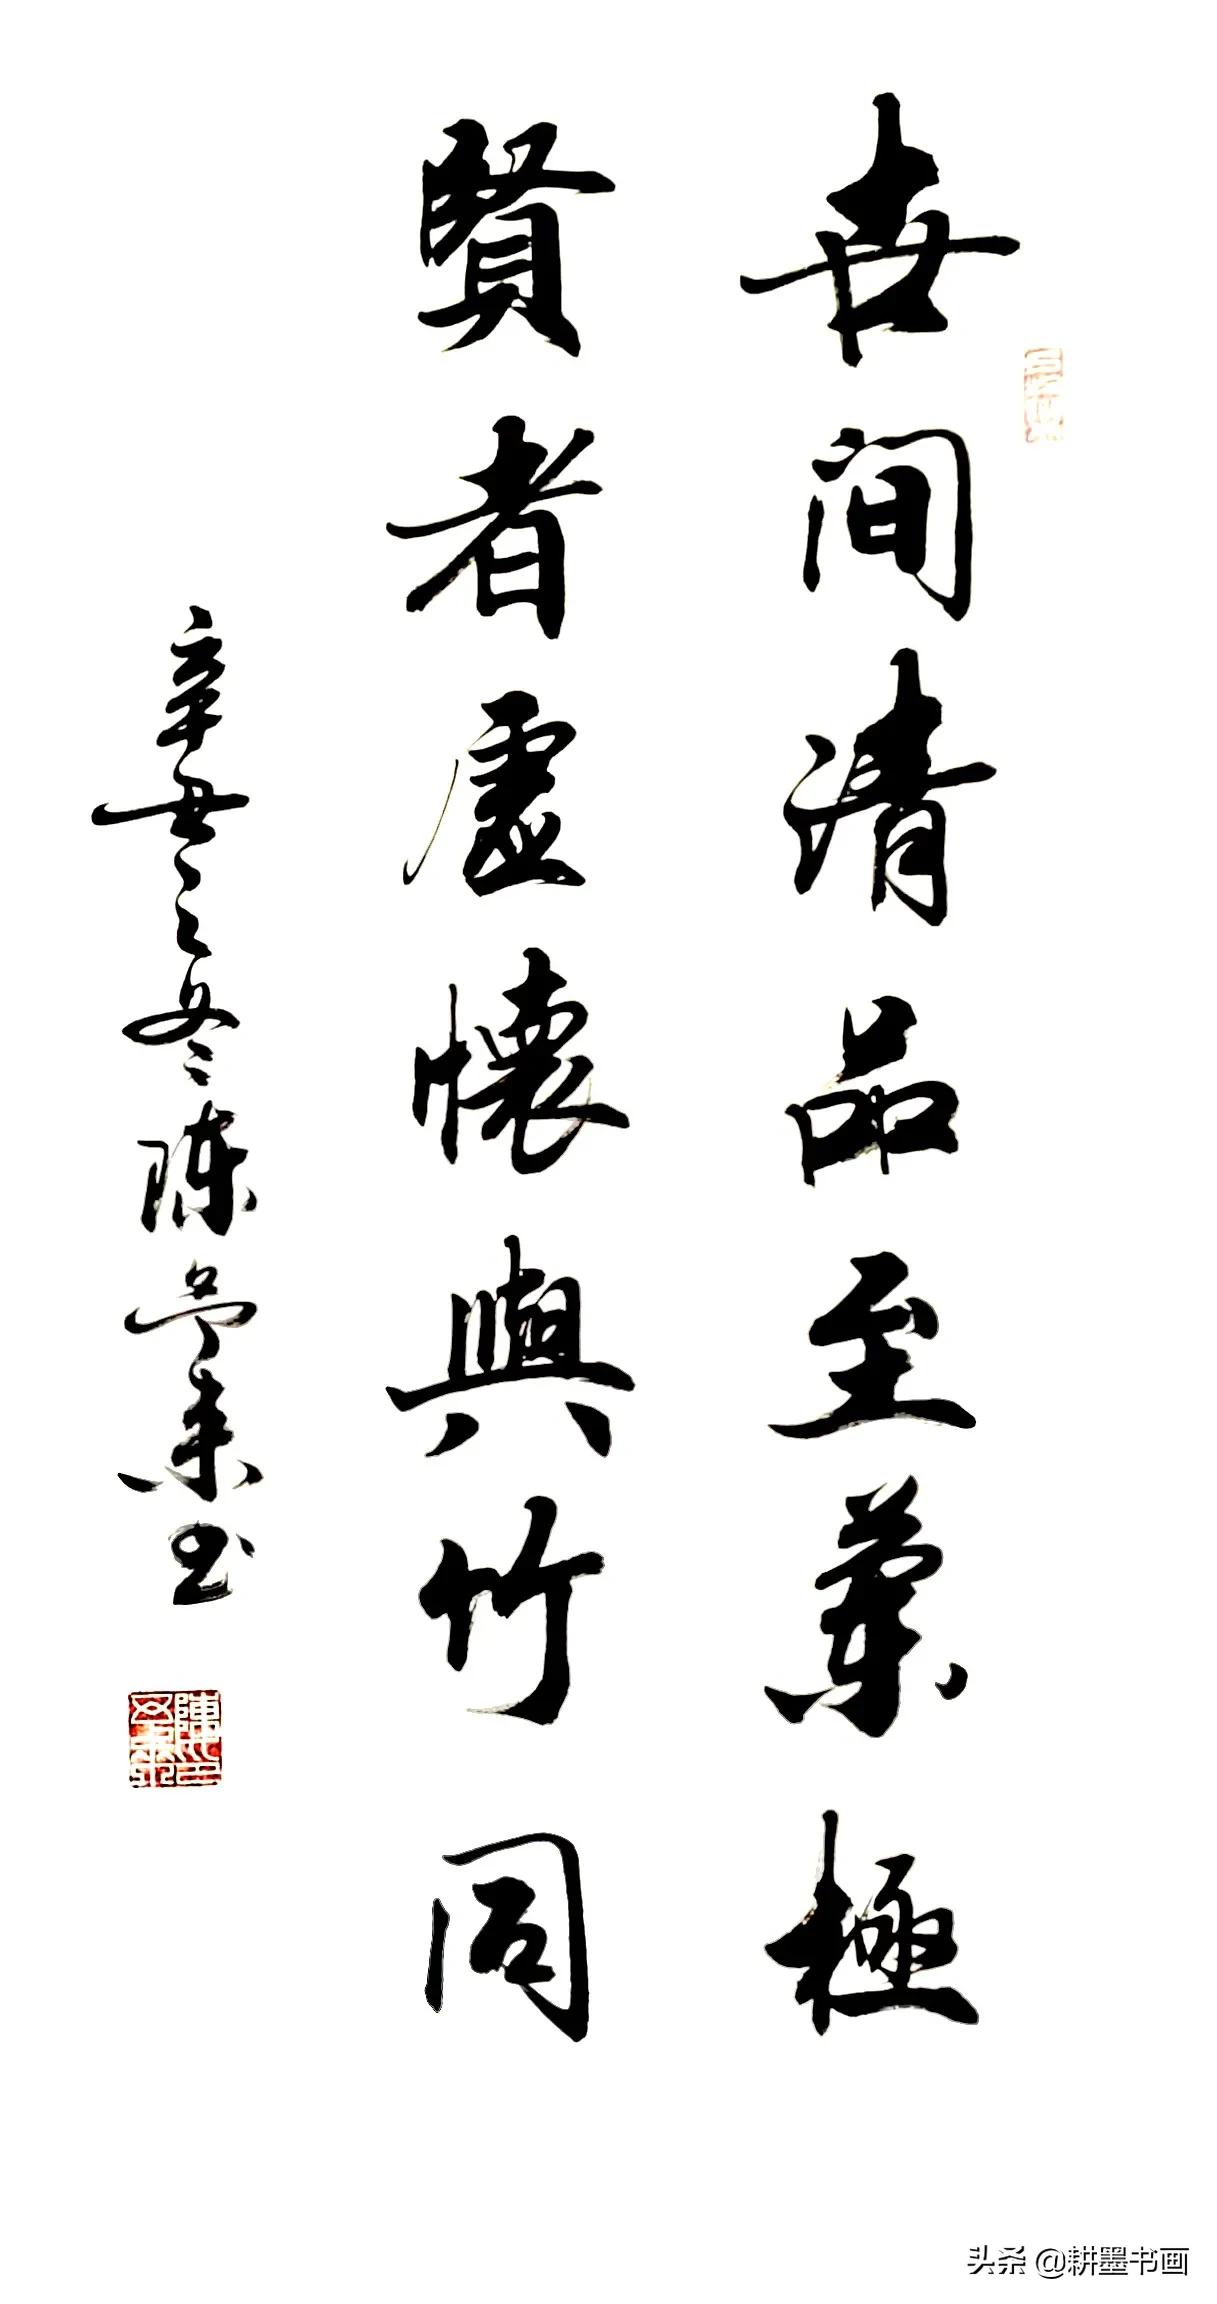 世間清品至蘭極
賢者虛懷與竹同
辛丑之冬陈书
头条 @耕墨书画